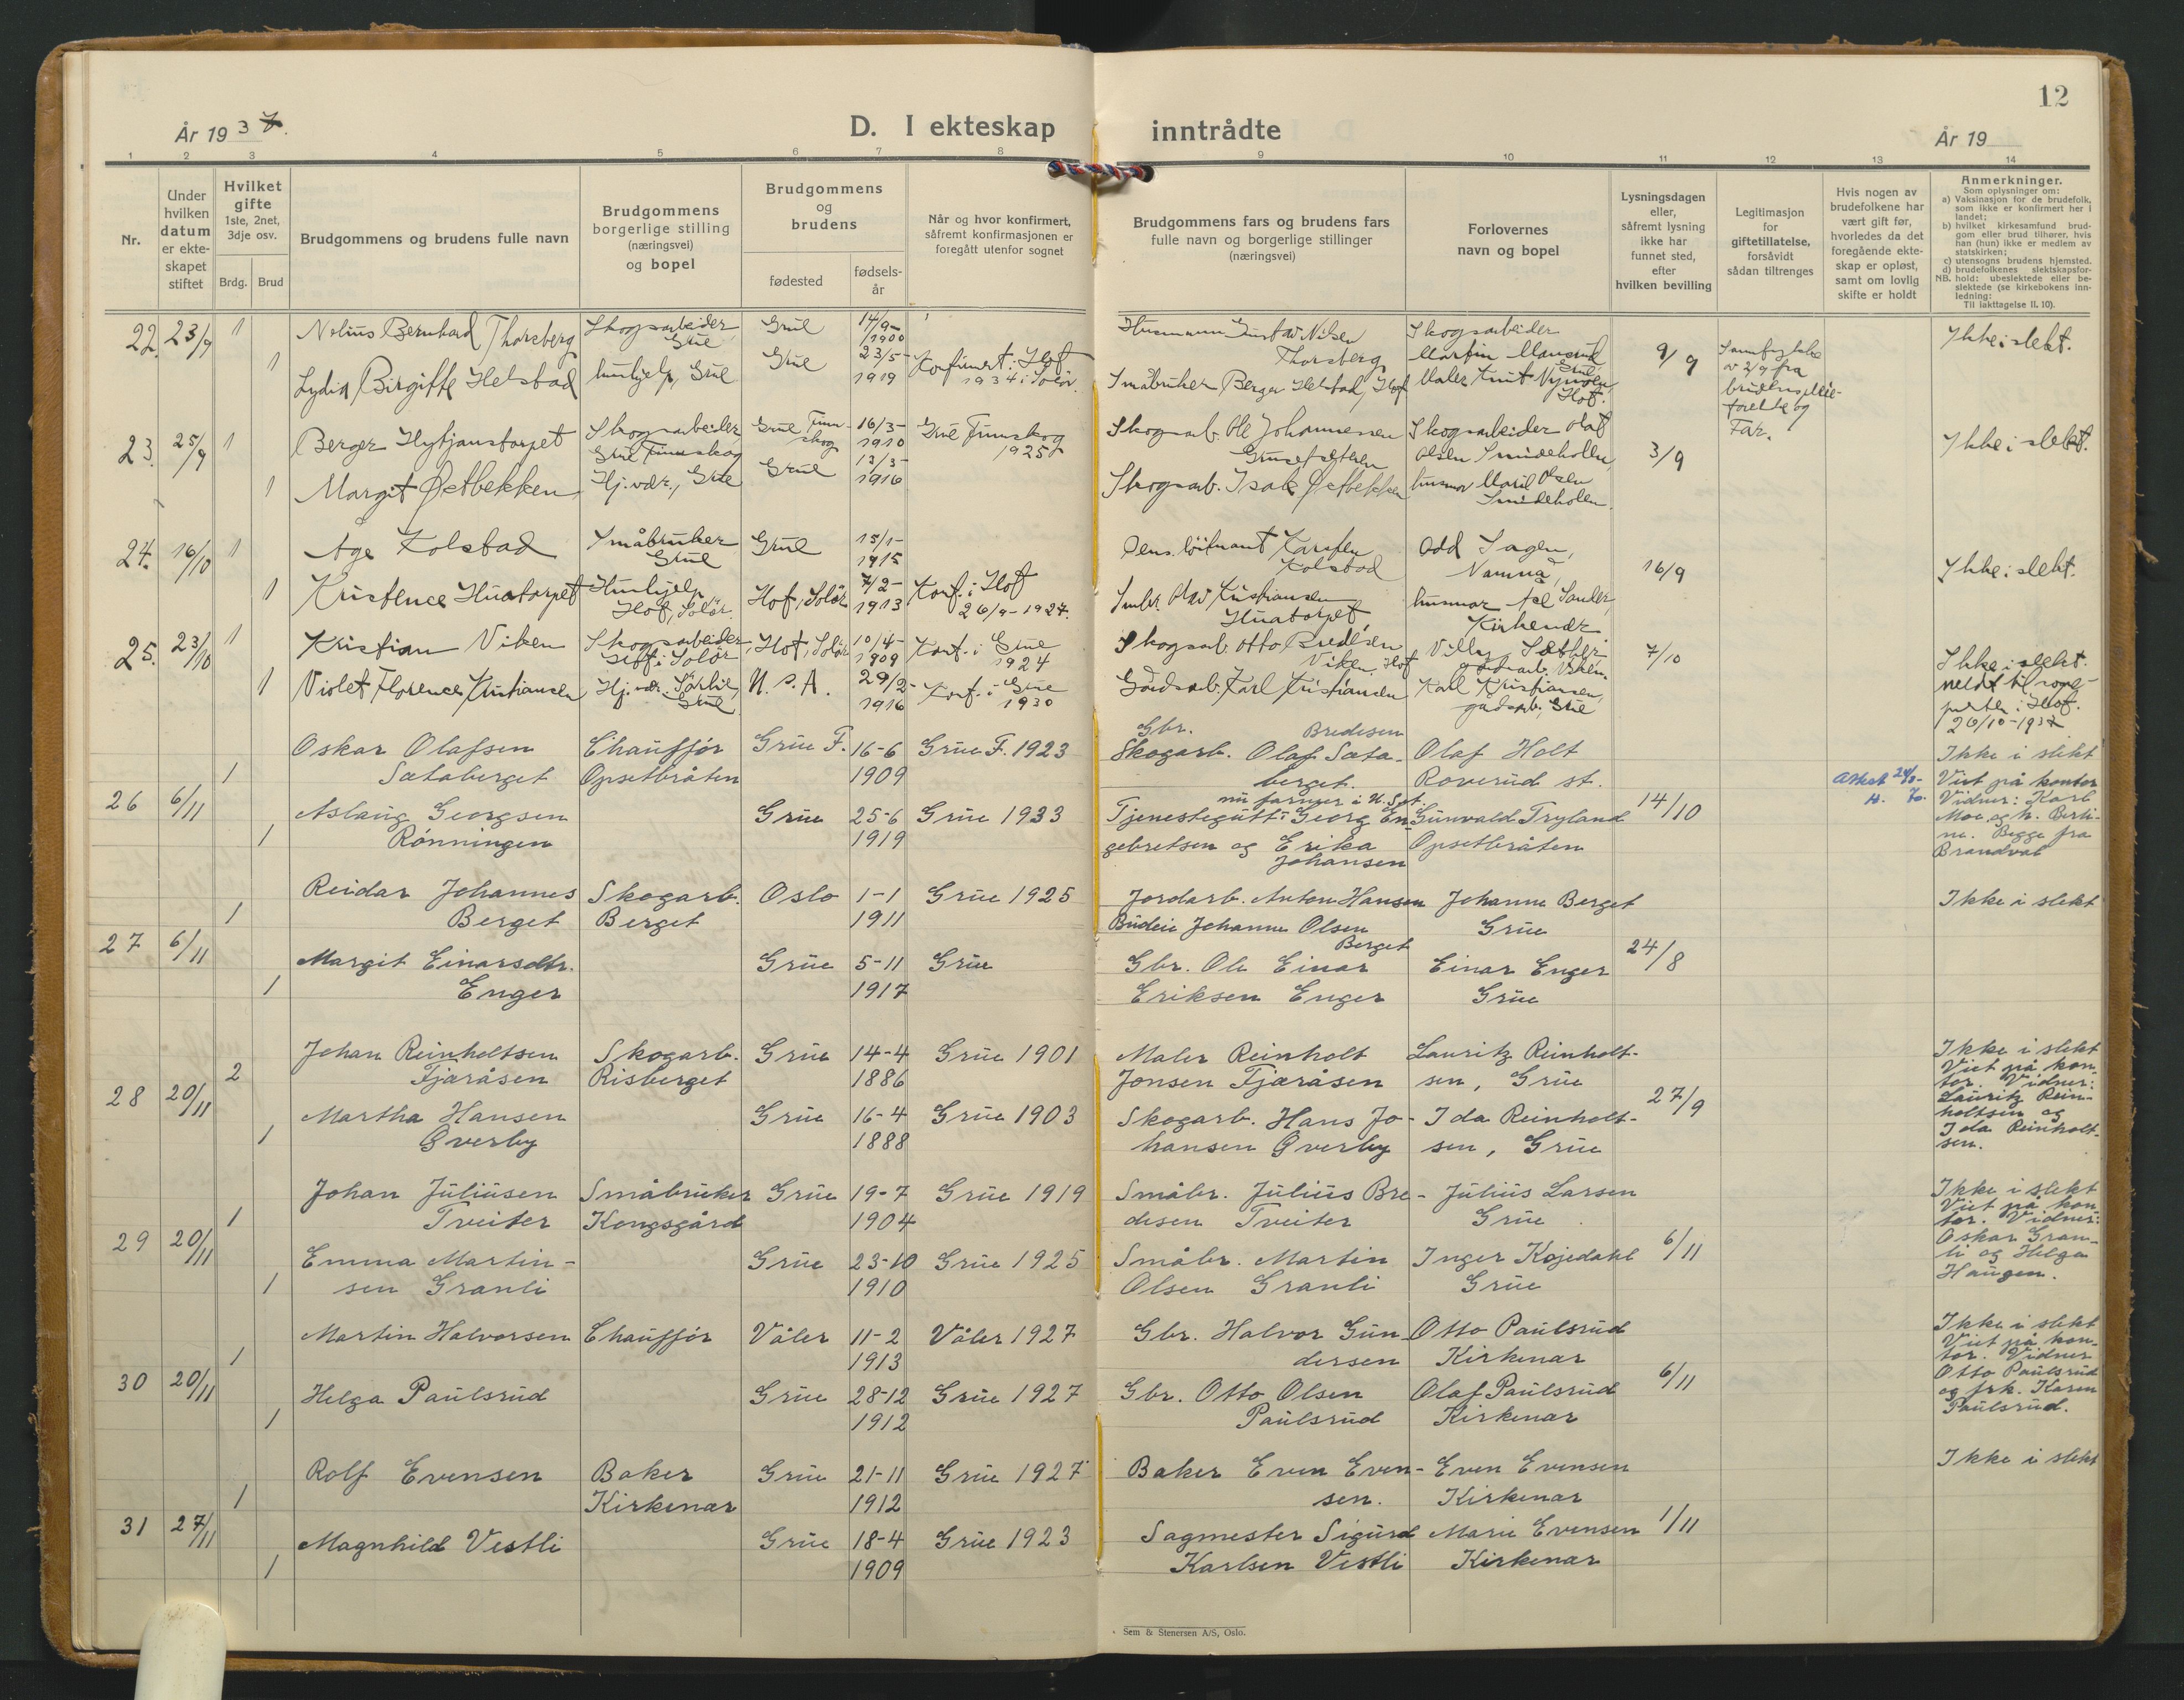 År 1937.
D. I ekteskap
inntrådte
12
År 19
1 2 3 4 5 6 7 8 9 10 11 12 13 14
Nr.
Under hvilken datum er ekteskapet stiftet
Hvilket gifte 1ste, 2net, 3dje osv.
Brdg. Brud
Brudgommens og brudens fulle navn
Brudgommens borgerlige stilling (næringsvei) og bopel
Brudgommens og brudens
fødested
fødselsår
Når og hvor konfirmert, såfremt konfirmasjonen er foregått utenfor sognet
Brudgommens fars og brudens fars fulle navn og borgerlige stillinger (næringsvei)
Forlovernes navn og bopel
Lysningsdagen eller, såfremt lysning ikke har funnet sted, efter hvilken bevilling
Legitimasjon for giftetillatelse, forsåvidt sådan tiltrenges
Hvis nogen av brudefolkene har vært gift før, hvorledes da det foregående ekteskap er opløst, samt om lovlig skifte er holdt
Anmerkninger.
Som oplysninger om:
a) Vaksinasjon for de brudefolk, som ikke er konfirmert her i landet;
b) hvilket kirkesamfund brudgom eller brud tilhører, hvis han (hun) ikke er medlem av statskirken;
c) utensogns brudens hjemsted.
d) brudefolkenes slektskapsforhold: ubeslektede eller beslektede (se kirkebokens innledning:
NB. Til iakttagelse II. 10).
22. 23/9 1 Nelius Bernhard Thorsberg Skogsarbeider, Grue Grue 14/9-1900 Husmann Gustav Nilsen Thorsberg Skogsarbeider Martin Grue 9/9 Ikke i slekt.
1 Lydia Birgitte Helstad hushjelp, Grue Grue 23/5-1919 Konfirmert i Hof 1934 i Solør. Småbruker Berger Helstad, Hof Maler Knut Hof.
23. 25/9 1 Berger Hytjanstorpet Skogsarbeider Grue Finnskog Grue Finnskog 16/3-1910 Grue Finnskog 1925 Skogsarb. Ole Johannessen Skogsarbeider Olaf Olsen 3/9 Ikke i slekt.
1 Margit Østbekken Hj.vær., Grue Grue 13/3-1916 Skogsarb. Isak Østbekken husmor Olsen
24. 16/10 1 Åge Kolstad Småbruker Grue Grue 15/1-1915 Karsten Kolstad Odd Sagen, Namnå 16/9 Ikke i slekt.
1 Kristence Huatorpet Hushjelp Hof, Solør. Hof, Solør 7/2-1913 Konf. i Hof 26/9-1927. Kristiansen Huatorpet husmor Kirkenær
25. 23/10 1 Kristian Viken Skogsarbeider, Hof i Solør Hof, Solør 10/4-1909 Konf. i Grue 1924 Skogsarb. Otto Bredesen Viken, Hof Villy Sæther, 7/10 Ikke i slekt.
1 Violet Florence Kristiansen Hj. vær. Grue U.S.A. 29/2-1916 Konf. i Grue 1930 Gårdsarb. Karl Kristiansen Karl Kristiansen, gårdarb., Grue meldt til sogneprsten i Hof. 26/10-1937
Oskar Olafsen Chauffør Grue F. 16-6 Grue F. 1923 Gbr. Bredesen Olaf Holt Ikke i slekt
1 Sætaberget Opsetbråten 1909 Skogarb. Olaf Sætaberget. Roverud st. Viet på kontor
26 6/11 Aslaug Georgsen Grue 25-6 Grue 1933 nu farmer i U. St. Tjenestegutt Georg Engebretsen og Erika Johansen Gunvald Tryland 14/10 Vidner: Karl Moe og
1 Rønningen 1919 Opsetbråten Begge fra Brandval
Reidar Johannes Skogarb. Oslo 1-1 Grue 1925 Jordarb. Anton Hansen Johanne Berget Ikke i slekt
1 Berget Berget 1911 Budeie Johanne Olsen Berget Grue
27 6/11 Margit Einarsdtr. Grue 5-11 Grue Gbr. Ole Einar Einar Enger 24/8
1 Enger 1917 Eriksen Enger Grue
Johan Reinholtsen Skogarb. Grue 14-4 Grue 1901 Maler Reinholt Lauritz Reinholt- Ikke i slekt
2 Tjæråsen Risberget 1886 Jonsen Tjæråsen sen, Grue Viet på kontor. Vidner:
28 20/11 Martha Hansen Grue 16-4 Grue 1903 Skogarb. Hans Jo- Ida Reinholt- 27/9 Lauritz Reinholtsen og
1 Gverby 1888 hansen Gverby sen, Grue Ida Reinholtsen.
Johan Juliusen Småbruker Grue 19-7 Grue 1919 Småbr. Julius Bre- Julius Larsen Ikke i slekt
1 Tveiter Kongsgård 1904 desen Tveiter Grue Viet på kontor. Vidner:
29 20/11 Emma Martin- Grue 23-10 Grue 1925 Småbr. Martin Inger Kojedahl 6/11 Oskar Granli og Helga
1 sen Granli 1910 Olsen Granli Grue Haugen.
Martin Halvorsen Chauffør Våler 11-2 Våler 1927 Gbr. Halvor Gun- Otto Paulsrud Ikke i slekt
1 1913 dersen Kirkenær Viet på kontor. Vidner
30 20/11 Helga Paulsrud Grue 28-12 Grue 1927 Gbr. Otto Olsen Olaf Paulsrud 6/11 Otto Paulsrud og frk. Karen
1 1912 Paulsrud Kirkenær Paulsrud.
Rolf Evensen Baker Grue 21-11 Grue 1927 Baker Even Even- Even Evensen Ikke i slekt
1 Kirkenær 1912 sen. Kirkenær
31 27/11 Magnhild Vestli Grue 18-4 Grue 1923 Sagmester Sigurd Marie Evensen 1/11
1 1909 Karlsen Vestli Kirkenær
Sem & Stenersen A/S, Oslo.